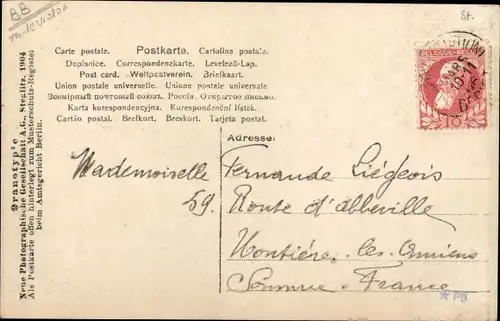 BB
St.
Carte postale. Postkarte. Cartolina postale.
Dopisnice. Correspondenzkarte. Levelező-Lap.
Post card. Weltpostverein. Briefkaart.
Union postale universelle. Unione postale universale
Всемірный почтовый союзъ. Россія. Открытое письмо.
Karta korespondencyjna. Kurespondenční lístek.
Cartão postal. Brefkort. Brevkort. Tarjeta postal.
Adresse:
Mademoiselle Fernande Liégeois
59. Route d'abbeville
Montiére-les-Amiens
Somme-France
*FB
Granotypie
Neue Photographische Gesellschaft A.G., Steglitz. 1904
Als Postkarte offen hinterlegt zum Musterschutz-Register
beim Amtsgericht Berlin.
10